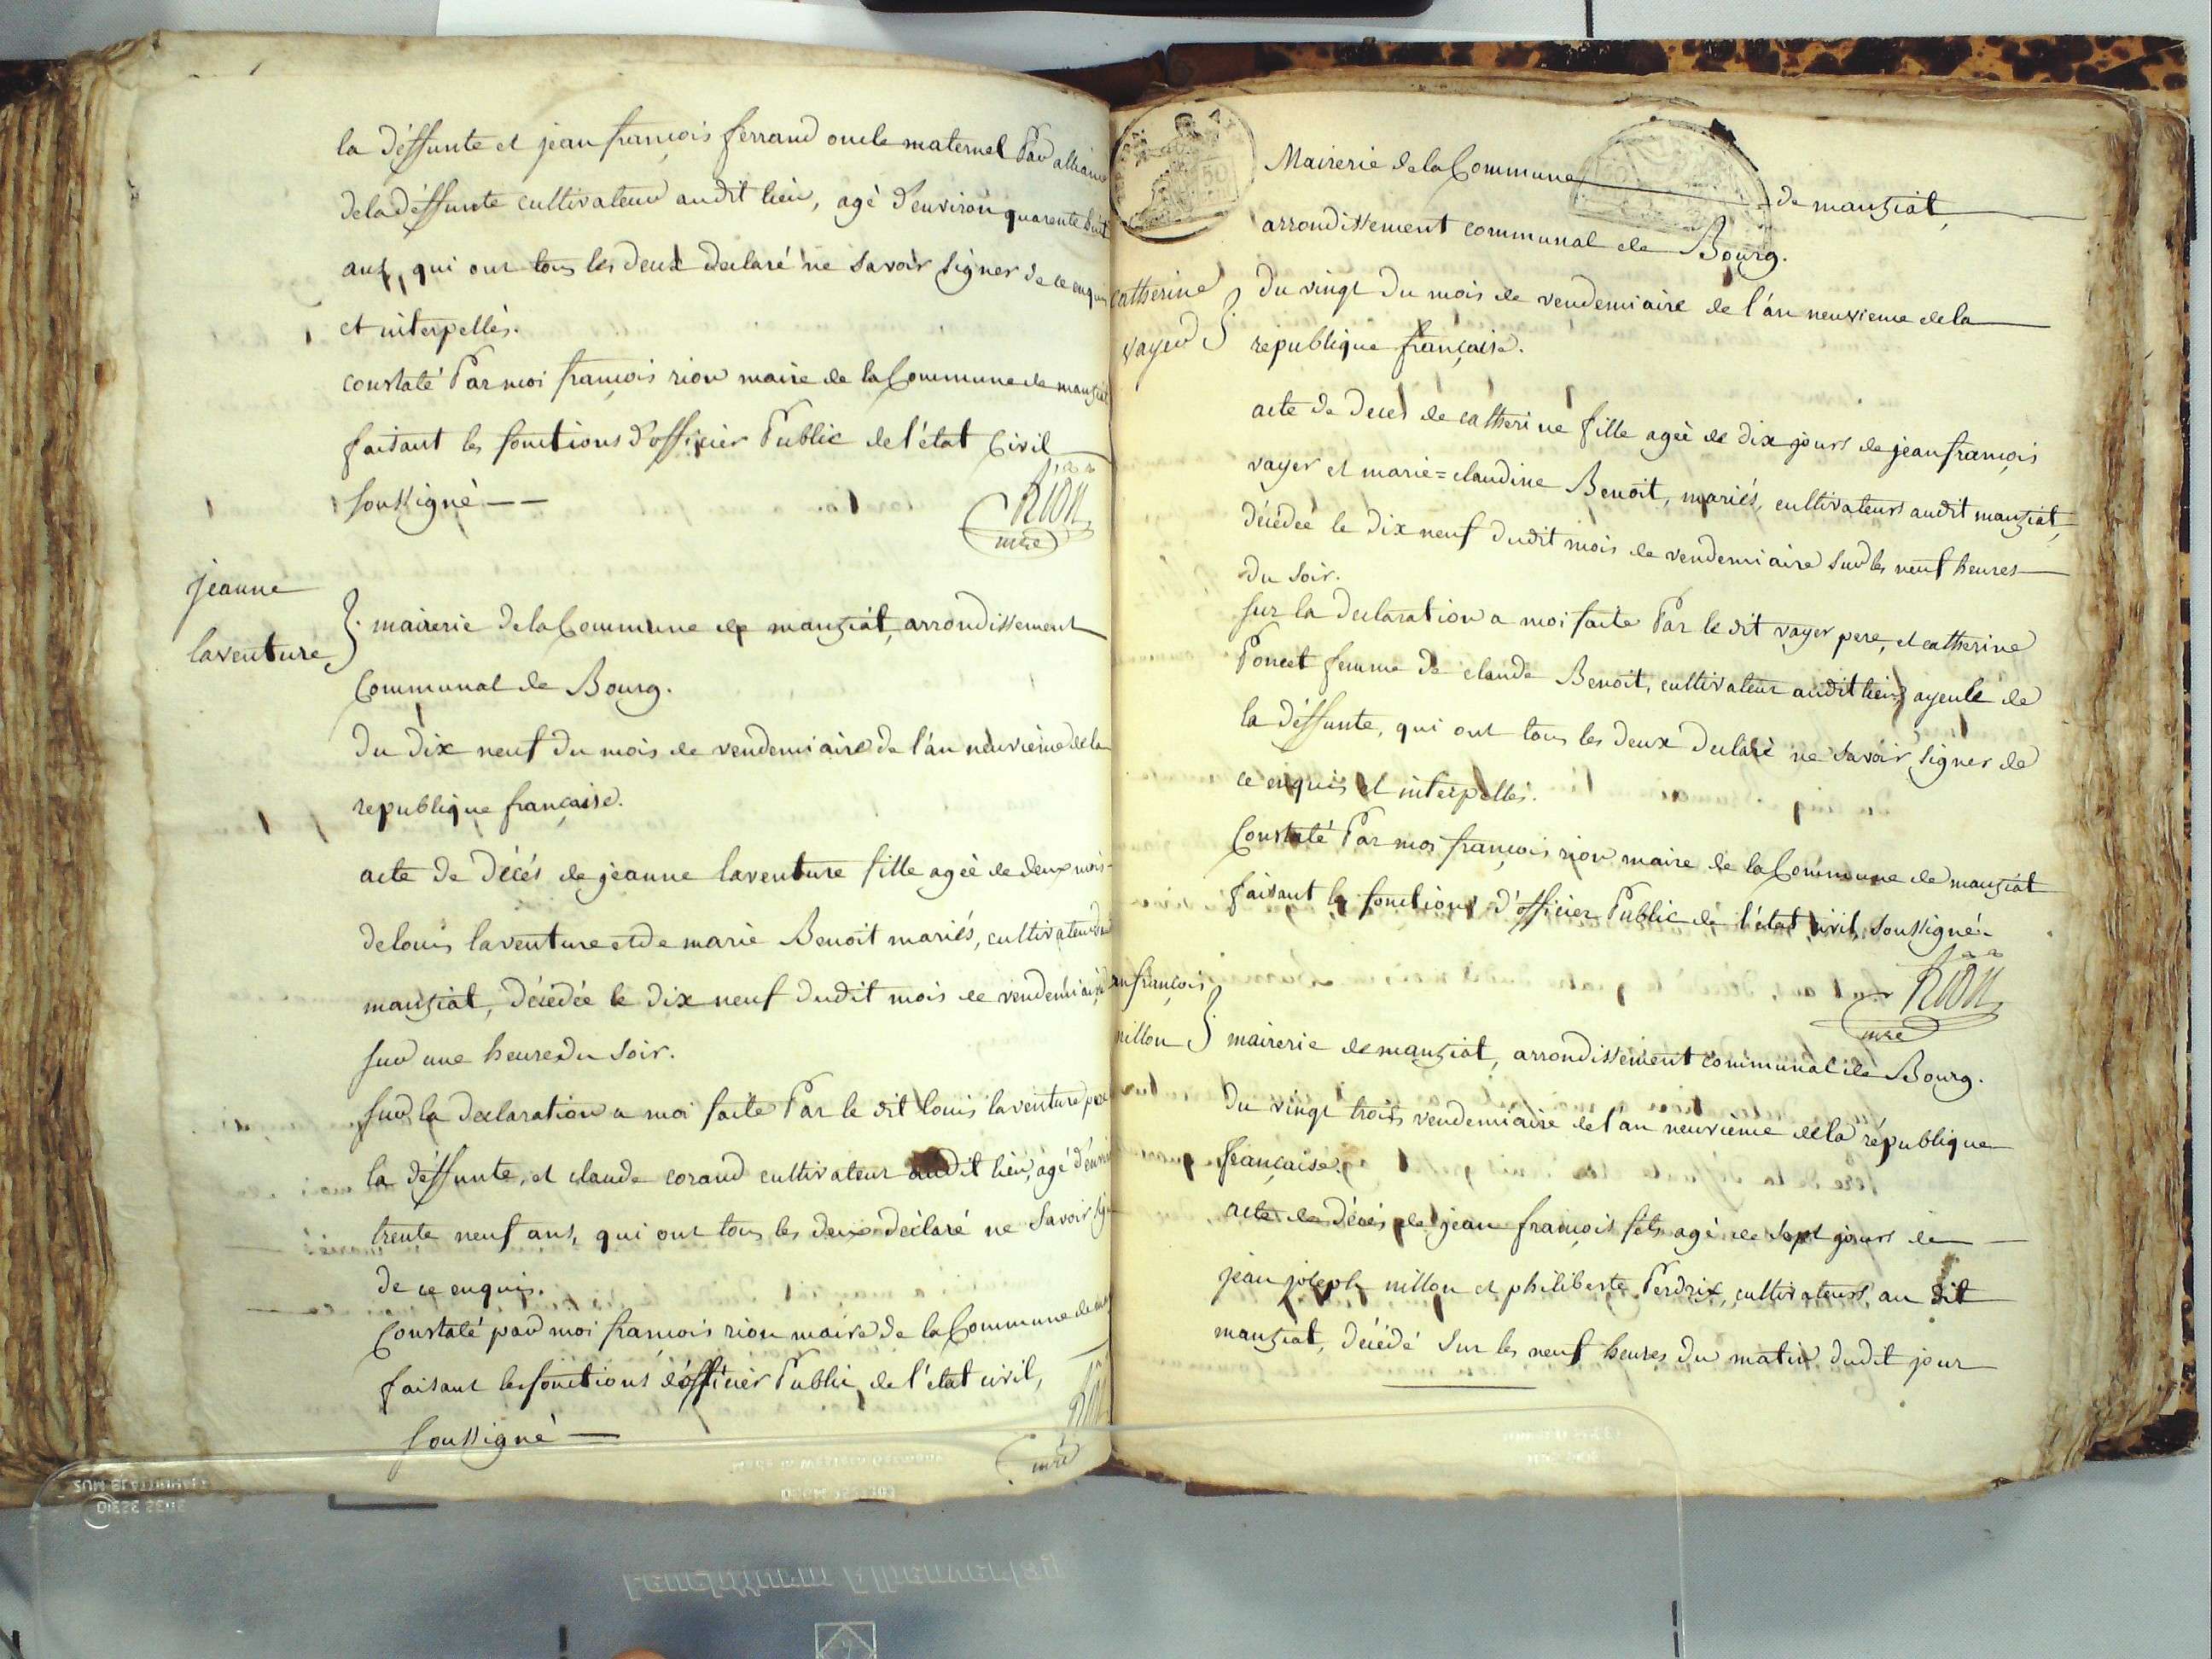 la déffunte et jean françois ferrand oncle maternel Par alliance
de la déffunte cultivateur audit lieu, agé d'environ quarente huit
ans, qui ont tous les deux declaré ne savoir signer de ce enquis
et interpellés.
constaté Par moi françois rion maire de la Commune de manziat
faisant les fonctions d'officier Public de l'état Civil
soussigné
Rion
mre
jeanne
laventure
mairerie de la Commune de manziat, arrondissement
Communal de Bourg.
du dix neuf du mois de vendemiaire de l'an neuvième de la
republique française.
acte de décés de jeanne laventure fille ageè de deux mois
de louis laventure et de marie Benoit mariés, cultivateurs
manziat, décédée le dix neuf dudit mois de vendemiaire
sur une heure du soir.
sur la declaration a moi faite Par le dit louis laventure pere
la déffunte, et claude corand cultivateur audit lieu, agé d'environ
trente neuf ans, qui ont tous les deux déclaré ne savoir
de ce enquis.
Constaté par moi françois rion maire de la Commune de
faisant les fonctions d'officier Public de l'état civil,
soussigné
mre
50
Mairerie de la Commune de manziat
arrondissement communal de Bourg.
catherine
vayer
du vingt du mois de vendemiaire de l'an neuvieme de la
republique française.
acte de deces de catherine fille ageè de dix jours de jean françois
vayer et marie=claudine Benoit, mariés, cultivateurs audit manziat,
décédeé le dix neuf dudit mois de vendemiaire sur les neuf heures
du soir.
sur la declaration a moi faite Par le dit vayer pere, et catherine
Poncet femme de claude Benoit, cultivateur audit lieu, ayeule de
la déffunte, qui ont tous les deux declaré ne savoir signer de
ce enquis et interpellés.
Constaté Par moi françois rion maire de la Commune de manziat
faisant les fonctions d'officier Public de l'état civil, soussigné
Rion
mre
françois
nillon
mairerie de manziat, arrondissement communal de Bourg.
du vingt trois vendemiaire de l'an neuvième de la république
française.
acte de décés de jean françois fils agé de sept jours de
jean joseph nillon et philiberte Perdrix, cultivateurs au dit
manziat, décédé sur les neuf heures du matin dudit jour